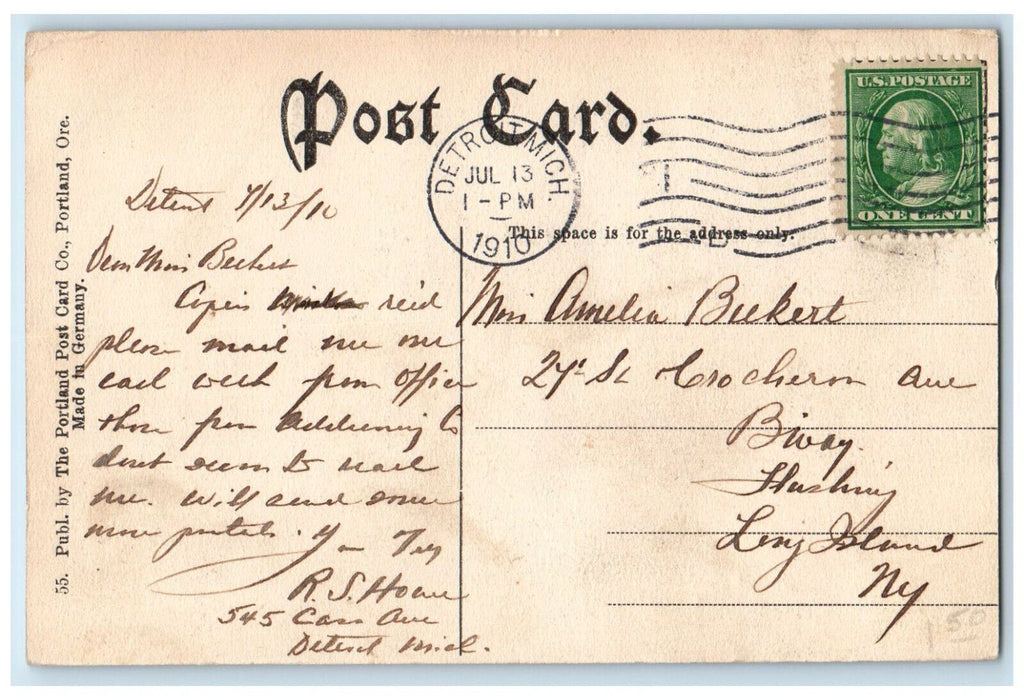 Post Card.
DETROIT, MICH.
JUL 13
1 - PM
1910
U.S. POSTAGE
ONE CENT
This space is for the address only.
55. Publ. by The Portland Post Card Co., Portland, Ore.
Made in Germany.
Detroit 7/13/10
Dear Miss Beekert
Copies rec'd
please mail me one
each week from office
those from addressing Co
dont seem to reach
me. Will send some
more postals.
R. S. Howe
545 Cass Ave
Detroit Mich.
Miss Amelia Beekert
27th St Crocheron Ave
Bway.
Flushing
Long Island
Ny
150